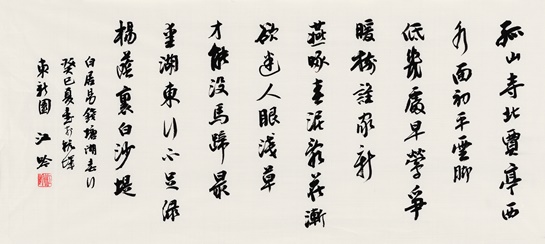 孤山寺北賈亭西
水面初平雲腳
低幾處早鶯爭
暖樹誰家新
燕啄春泥亂花漸
欲迷人眼淺草
才能沒馬蹄最
愛湖東行不足綠
楊蔭裏白沙堤
白居易錢塘湖春行
癸巳夏書於杭城
東新園 江吟